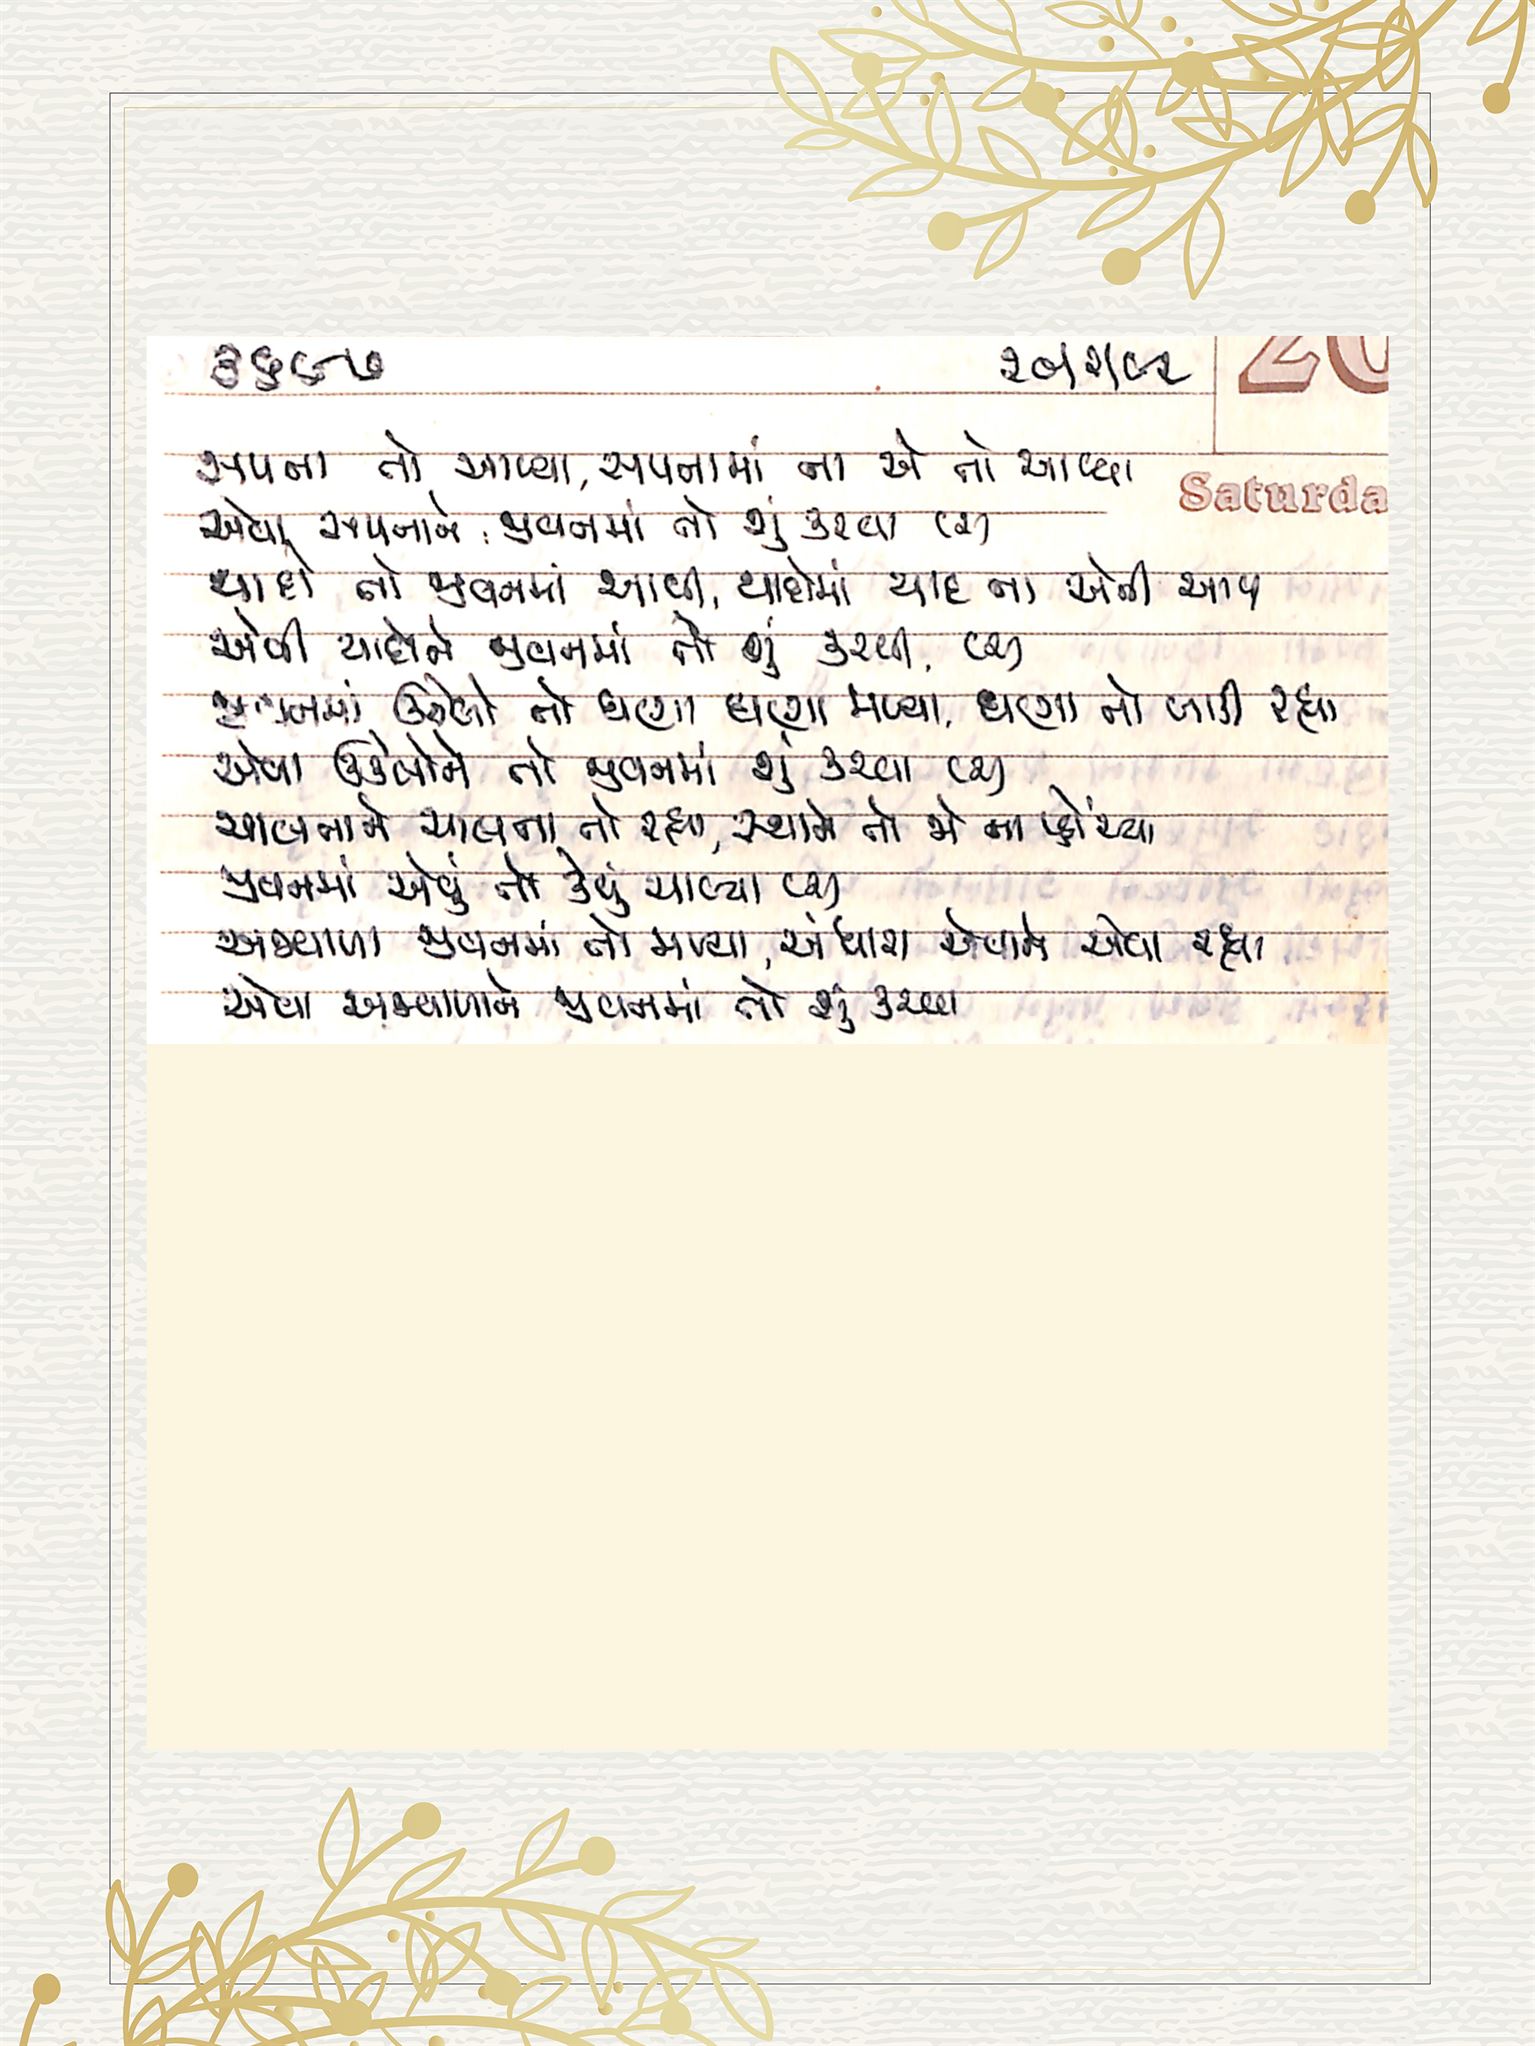 ૩૬૯૭ ૨૯/૨/૯૨
20
Saturda
સપના તો આવ્યા, સપનામાં ના એ તો આવ્યા
એવા સપનાને જીવનમાં તો શું કરવા (૨)
યાદો તો જીવનમાં આવી, યાદોમાં યાદ ના એની આવી
એવી યાદોને જીવનમાં તો શું કરવી. (૨)
જીવનમાં ઉકેલો તો ઘણા ઘણા મળ્યા, ઘણા તો બાકી રહ્યા
એવા ઉકેલોને તો જીવનમાં શું કરવા (૨)
ચાલતાને ચાલતા તો રહ્યા, સ્થાને તો જે ના પ્હોંચ્યા
જીવનમાં એવું તો કેવું ચાલ્યા (૨)
અજવાળા જીવનમાં તો મળ્યા, અંધારા એવાને એવા રહ્યા
એવા અજવાળાને જીવનમાં તો શું કરવા